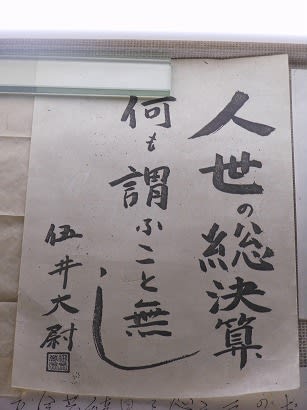 人世の総決算
何も謂ふこと無し
伍井大尉